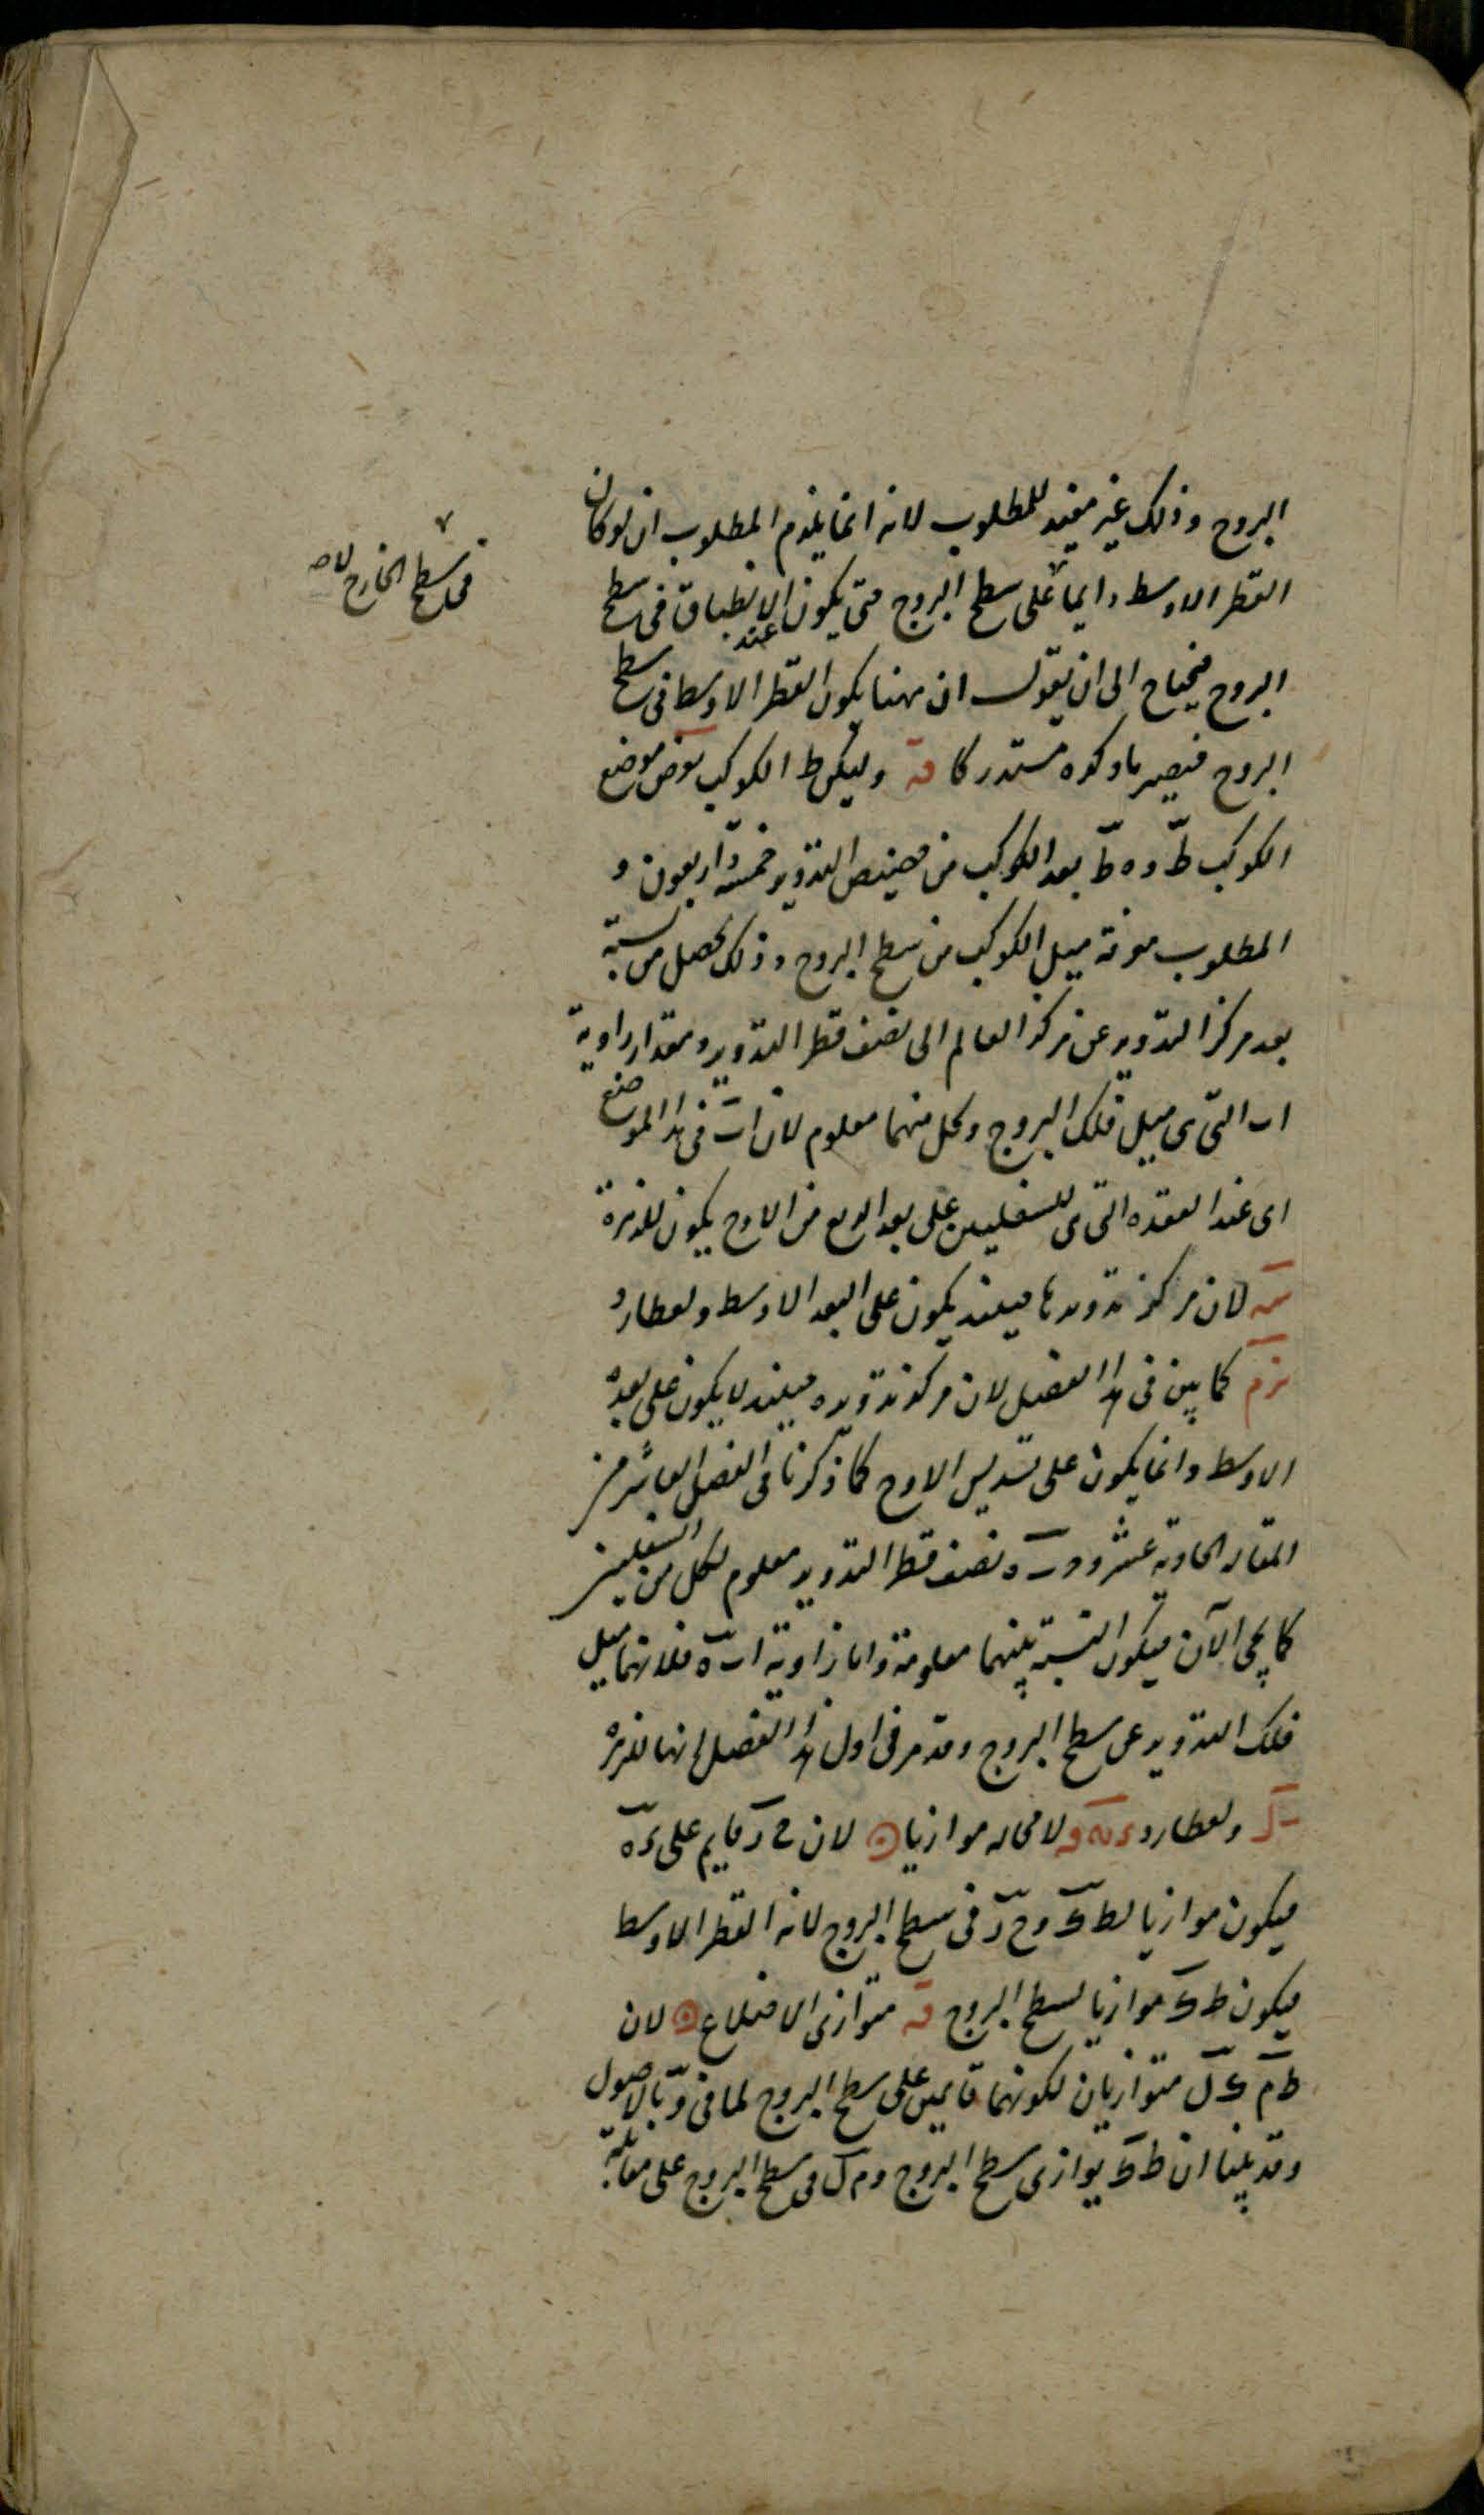 البروج وذلك غير مفيد للمطلوب لانه انما يلزم المطلوب ان لو كان
القطر الاوسط دايما على سطح البروج حتى يكون الانطباق فى سطح
عند
فى سطح الخارج لا
البروج فيحتاج الى ان يقول ان ههنا يكون القطر الاوسط فى سطح
البروج فيصير ما ذكره مستدركا قه وليكن ط الكوكب نعرض موضع
الكوكب ط و ه ط بعد الكوكب من حضيض التدوير خمسة واربعون و
المطلوب معرفة ميل الكوكب من سطح البروج وذلك يحصل من نسبة
بعد مركز التدوير عن مركز العالم الى نصف قطر التدوير ومقدار زاوية
اب التى هى ميل فلك البروج وكل منهما معلوم لان اب فى هذا الموضع
اى عند العقدة التى هى للسفليين على بعد الربع من الاوج يكون للزهرة
لان مركز تدويرها حينئذ يكون على البعد الاوسط ولعطارد
كما بين فى هذا الفصل لان مركز تدويره حينئذ لا يكون على بعده
الاوسط وانما يكون على تسديس الاوج كما ذكرنا فى الفصل العاشر من
المقالة الحادية عشر و ب ه نصف قطر التدوير معلوم لكل من السفليين
كما يجئ الآن فيكون النسبة بينهما معلومة واما زاوية اب ه فلانها ميل
فلك التدوير عن سطح البروج وقد مر فى اول هذا الفصل انها للزهرة
ولعطارد قه لا محالة موازيا لان ح د قايم على ء ه
فيكون موازيا لط ك و ح د فى سطح البروج لانه القطر الاوسط
فيكون ط ك موازيا لسطح البروج قه متوازى الاضلاع لان
ط م ك ل متوازيان لكونهما قايمين على سطح البروج لما فى و يا الاصول
وقد بينا ان ط ك يوازى سطح البروج و م ل فى سطح البروج على مقابلة